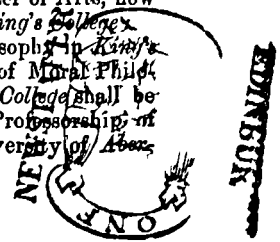 ser of Arts, now
ing's College
sophy in King's
of Moral Phil-
College shall be
Professorship of
versity of Aber-
NEW
EDINBUR